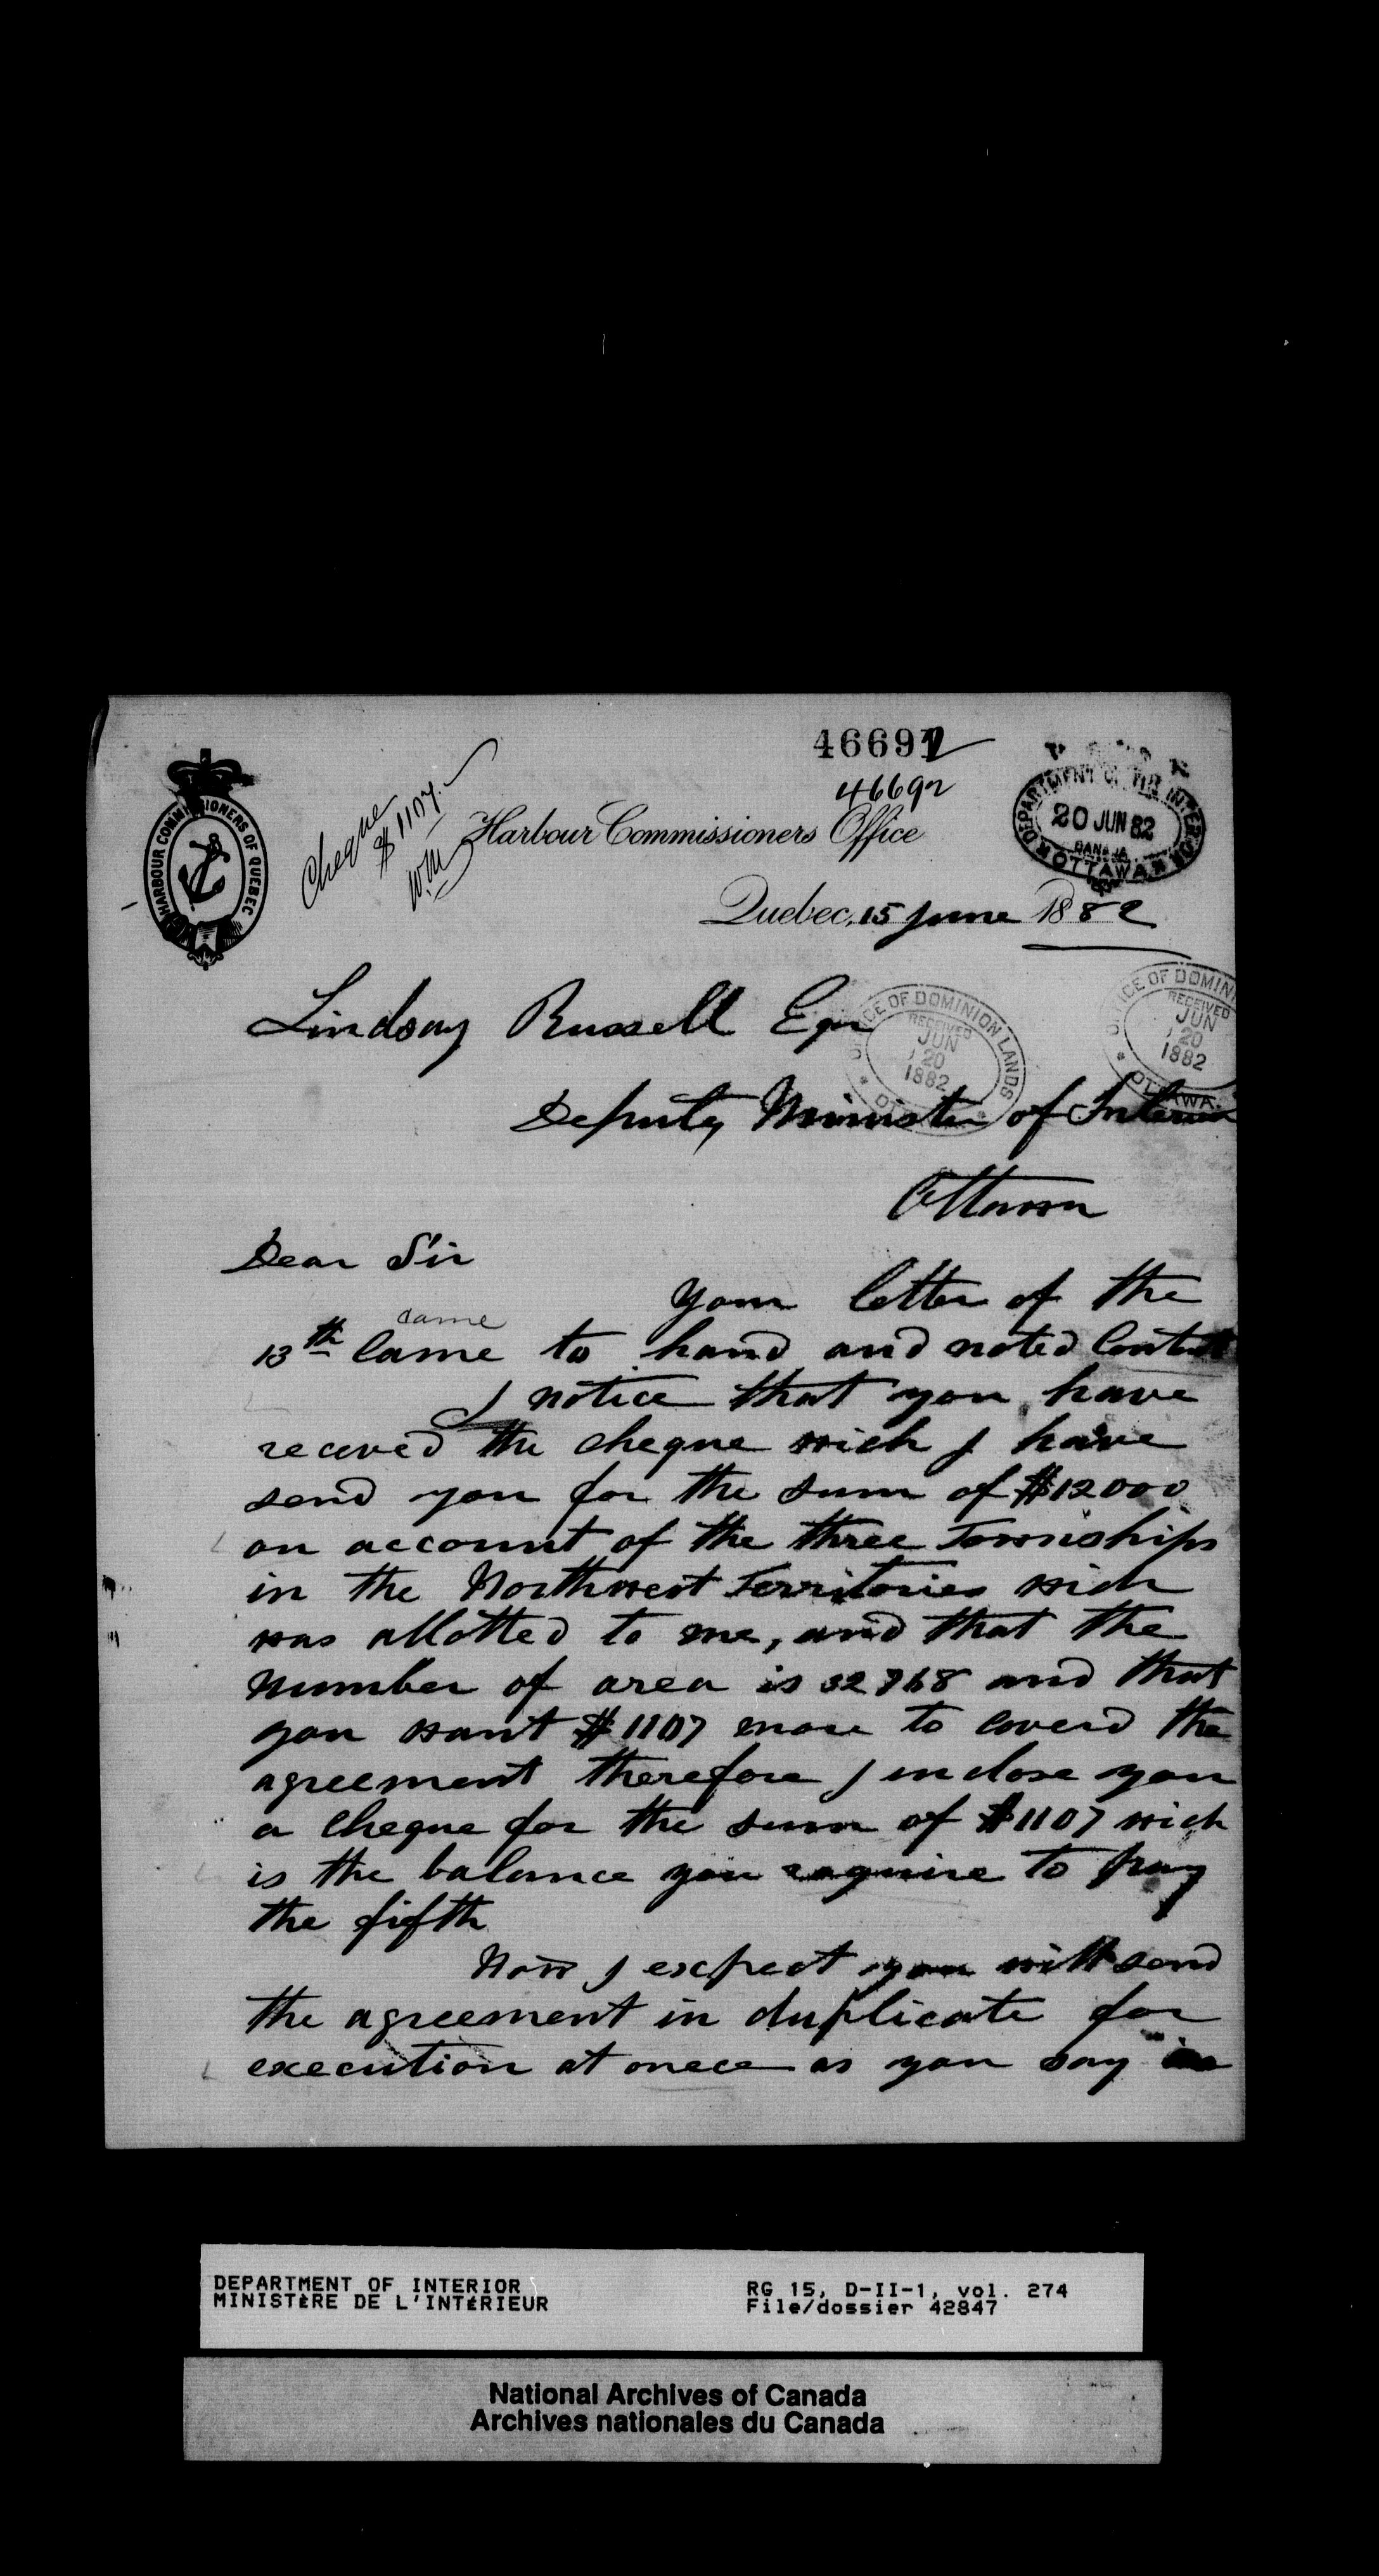 46692
46692
HARBOUR COMMISSIONERS OF QUEBEC
Cheque
$1107.
W.M
Harbour Commissioners Office
DEPARTMENT OF THE INTERIOR
20 JUN 82
CANADA
OTTAWA
Quebec, 15 June 1882
OFFICE OF DOMINION LANDS
RECEIVED
JUN
20
1882
OFFICE OF DOMINI
RECEIVED
JUN
20
1882
OTTAWA
Lindsay Russell Eqr
Deputy Minister of Interior
Ottawa
Dear Sir
Your letter of the
came
13th came to hand and noted Content
I notice that you have
receved the cheque wich I have
send you for the sum of $12000
on account of the three Townships
in the Northwest Territories wich
was allotted to me, and that the
number of area is 32768 and that
you want $1107 more to coverd the
agreement therefore I inclose you
a cheque for the sum of $1107 wich
is the balance you require to pay
the fifth
Now I expect you will send
the agreement in duplicate for
execution at onece as you say
DEPARTMENT OF INTERIOR
MINISTÈRE DE L'INTÉRIEUR
RG 15, D-II-1, vol. 274
File/dossier 42847
National Archives of Canada
Archives nationales du Canada